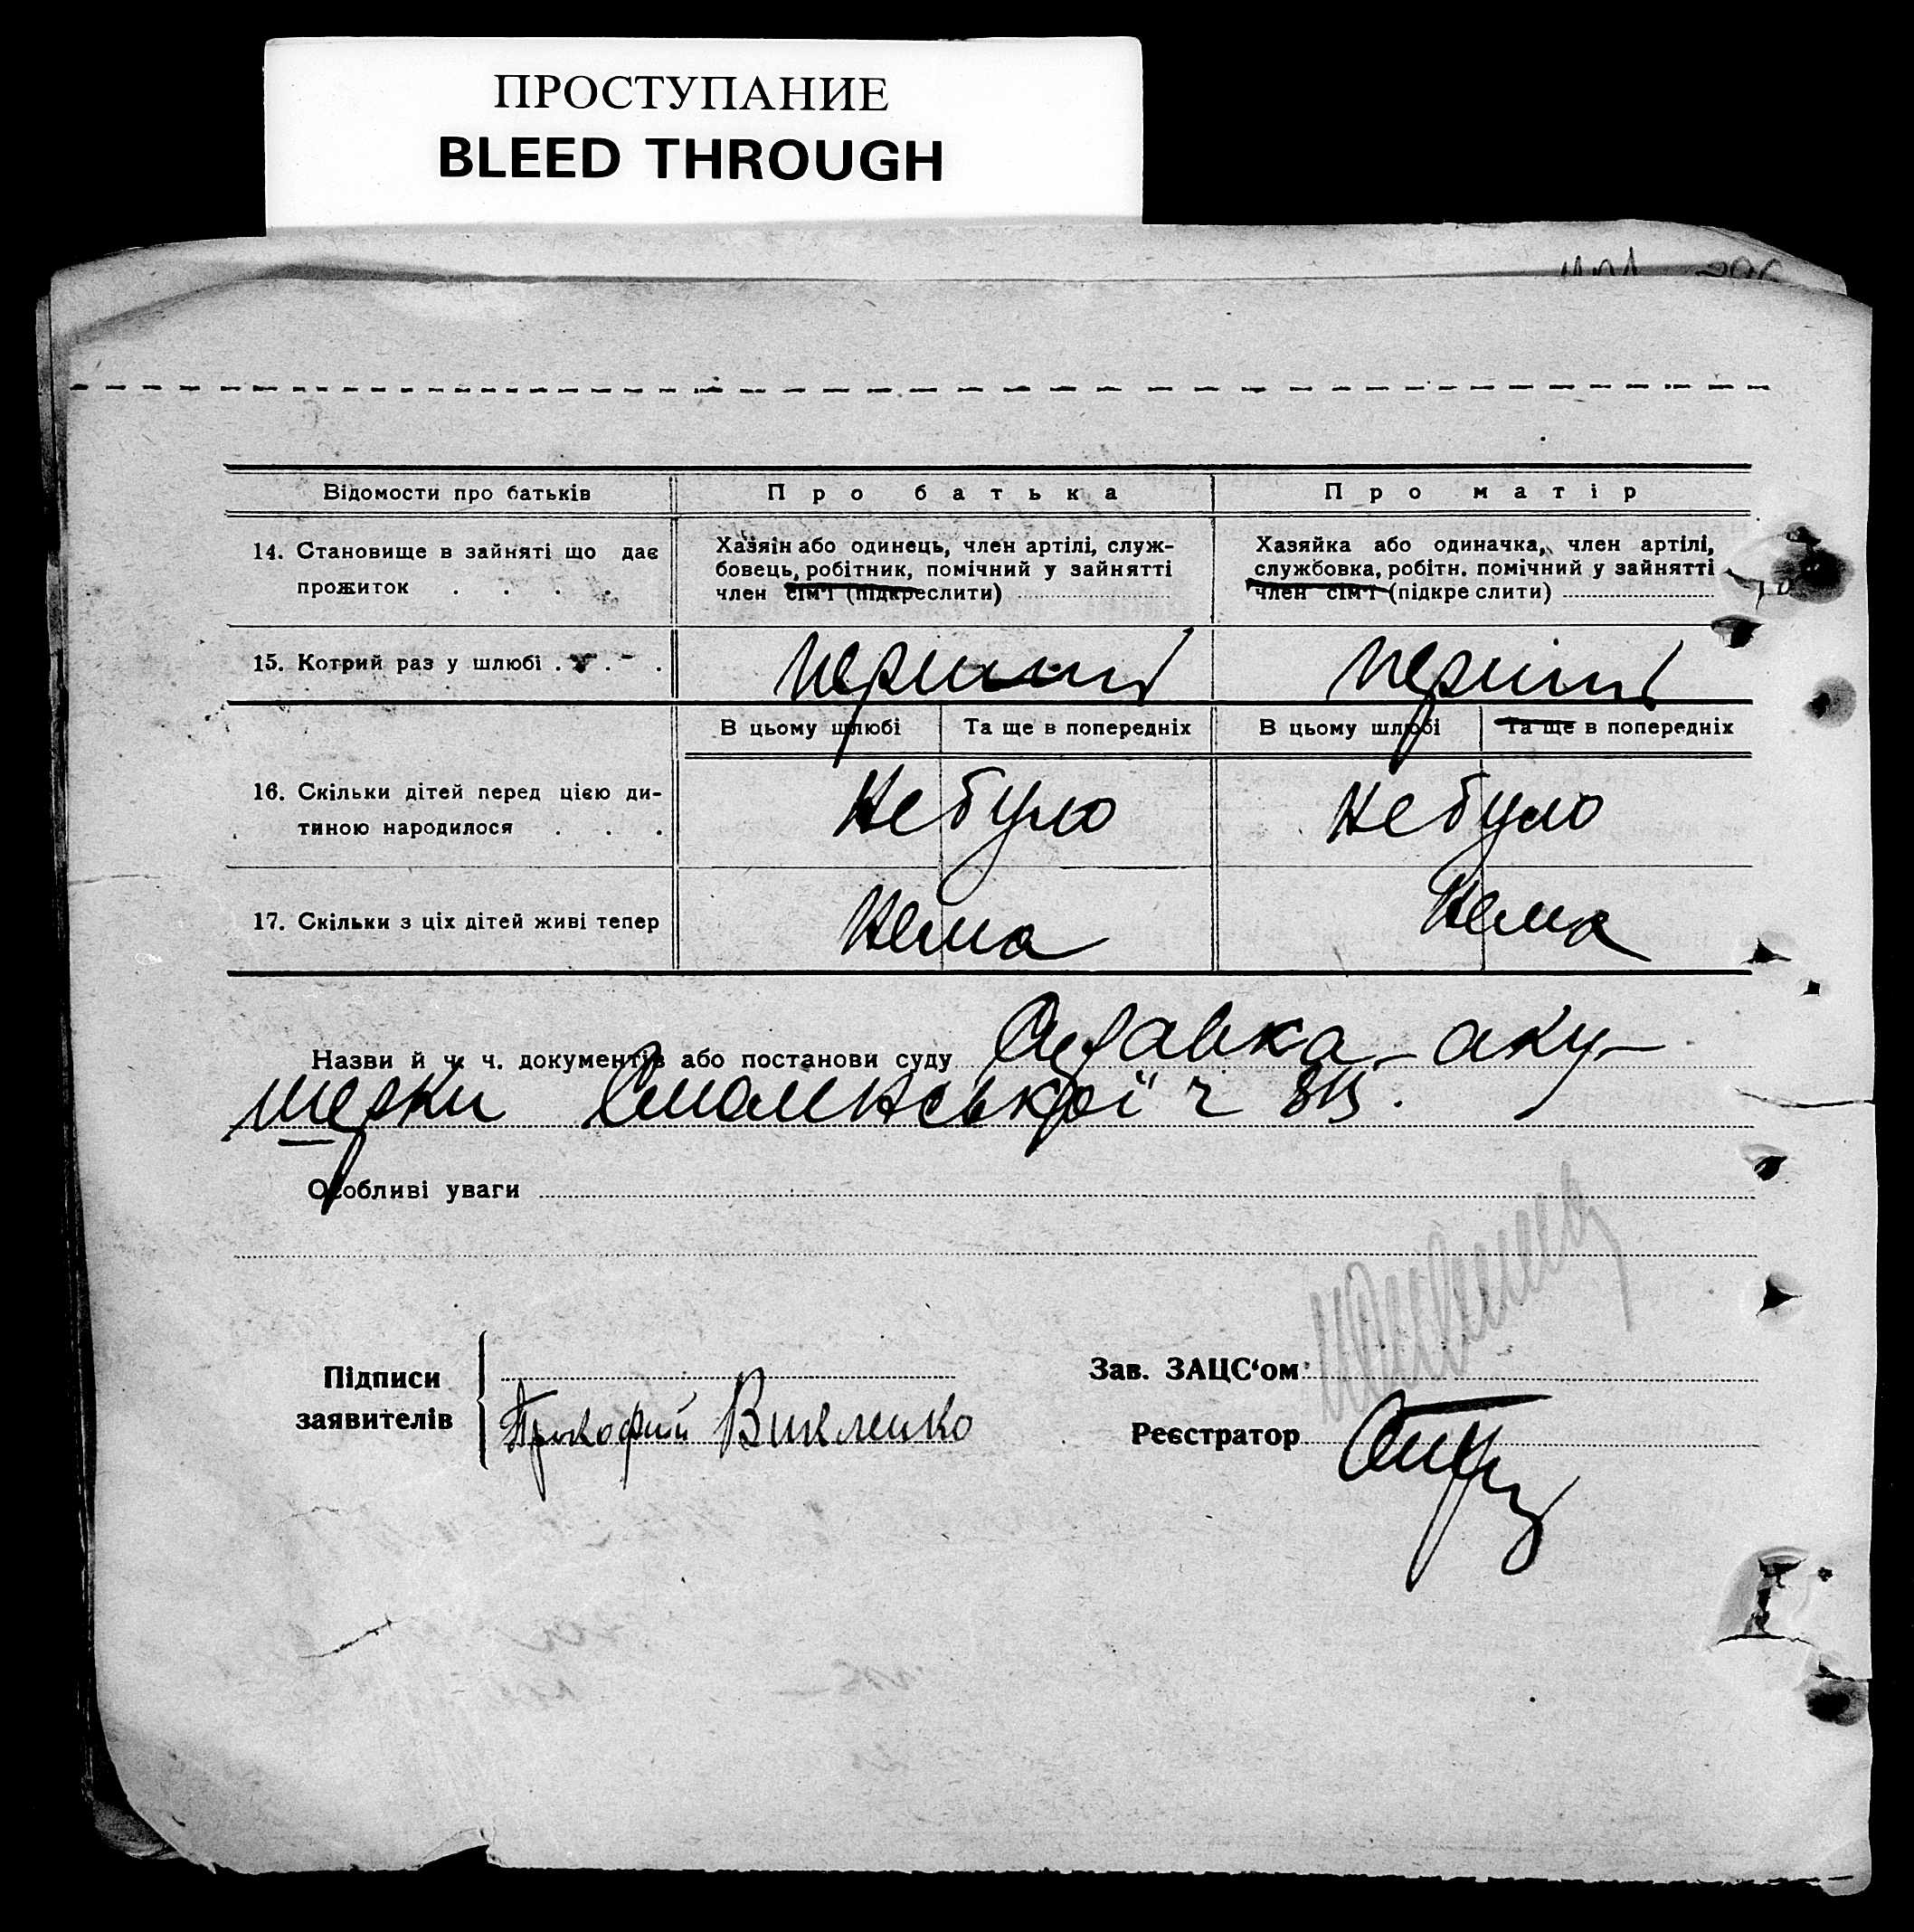 ПРОСТУПАНИЕ
BLEED THROUGH
Відомости про батьків
Про батька
Про матір
14. Становище в зайняті що дає
прожиток . . . .
Хазяїн або одинець, член артілі, служ-
бовець, робітник, помічний у зайнятті
член сім'ї (підкреслити)
Хазяйка або одиначка, член артілі,
службовка, робітн. помічний у зайнятті
член сім'ї (підкре слити)
15. Котрий раз у шлюбі . . . .
перший
перший
В цьому шлюбі
Та ще в попередніх
В цьому шлюбі
Та ще в попередніх
16. Скільки дітей перед цією ди-
тиною народилося . . .
не було
не було
17. Скільки з ціх дітей живі тепер
нема
нема
Назви й ч. ч. документів або постанови суду Справка аку-
шерки Смоленської ч
Особливі уваги
Підписи
заявителів
Прокофий
Зав. ЗАЦС‘ом
Реєстратор